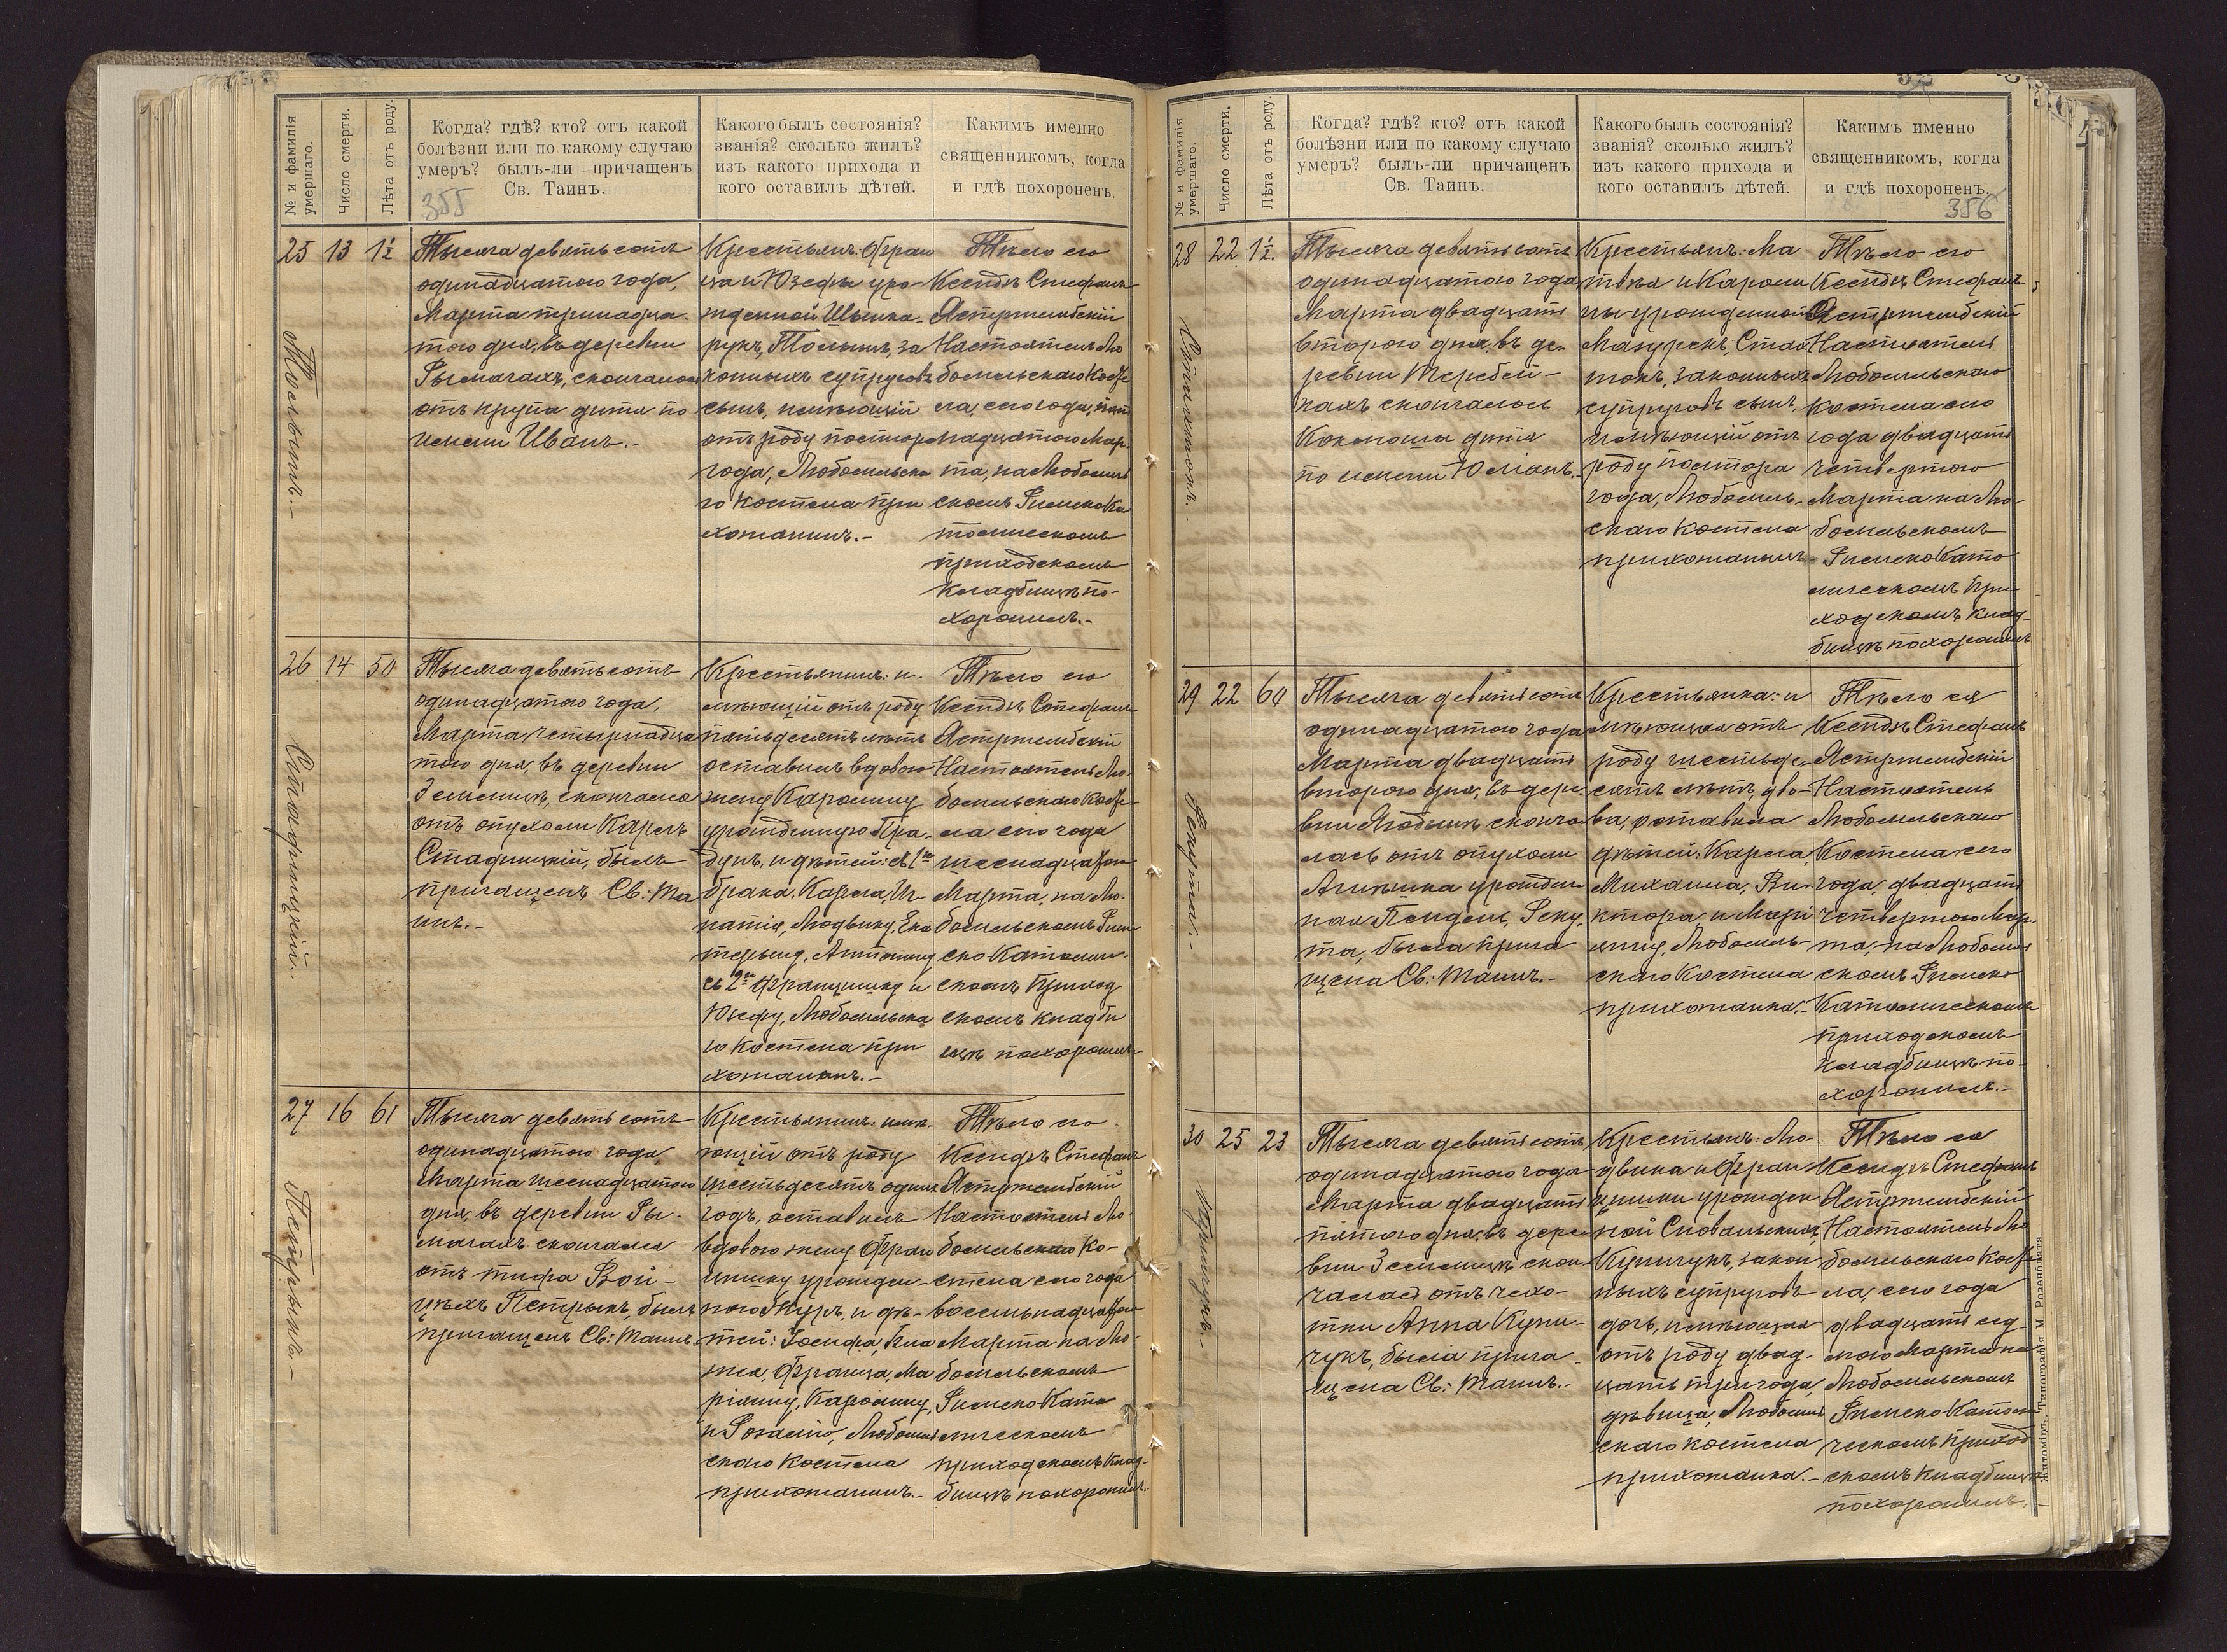 № и фамилія умершаго.
Число смерти.
Лѣта отъ роду.
Когда? гдѣ? кто? отъ какой
болѣзни или по какому случаю
умеръ? былъ-ли причащенъ
Св. Таинъ.
355
Какого былъ состоянія?
званія? сколько жилъ?
изъ какого прихода и
кого оставилъ дѣтей.
Какимъ именно
священникомъ, когда
и гдѣ похороненъ.
25 13 1½
Тысяча девятьсотъ
одинадцатого года,
Марта тринадца-
того дня, въ деревни
Рымачахъ, скончалось
отъ крупа дитя по
имени Иванъ.-
Крестьянъ: Фран
ца и Юзефы уро-
жденной
законныхъ супруговъ
сынъ, имѣющій
отъ роду полтора
года, Любомльска
го костела при
хожанинъ.-
Тѣло его
Ксендзъ Стефанъ
Ястржембскій
Настоятель Лю
бомльскаго Косте
ла, сего года, пят
надцатого Мар-
та, на Любомль
скомъ Римско Ка
толическомъ
приходскомъ
кладбищѣ по-
хоронилъ.-
26 14 50
Стадницкій.
Тысяча девятьсотъ
одинадцатого года,
Марта четырнадца
того дня, въ деревни
Землицѣ, скончался
отъ опухоли Карлъ
Стадницкій, былъ
причащенъ Св: Та
инъ.-
Крестьянинъ: и-
мѣющій отъ роду
пятьдесятъ лѣтъ
оставилъ вдовою
жену Каролину
урожденную
и дѣтей: съ 1го
брака, Карла, Иг-
натія, Людвику, Ека
терину, Антонину
съ 2го Францишку и
Юзефу, Любомльска
го костела при
хожанинъ.-
Тѣло его
Ксендзъ Стефанъ
Ястржембскій
Настоятель Лю-
бомльскаго Косте
ла сего года
шеснадцатого
Марта, на Лю-
бомльскомъ Рим
ско Католиче-
скомъ приход
скомъ кладби
щѣ похоронилъ
27 16 61
Петрыкъ.-
Тысяча девятьсотъ
одинадцатого года,
Марта шеснадцатого
дня, въ деревни Ры-
мачахъ скончался
отъ тифа Вой-
цѣхъ Петрыкъ, былъ
причащенъ Св: Таинъ.
Крестьянинъ: имѣ-
ющій отъ роду
шестьдесятъ одинъ
годъ, оставилъ
вдовою жену Фран
цишку урожден-
ного Жукъ, и дѣ-
тей: Іосифа,
Франца, Ма
ріянну, Каролину,
и Розалію, Любомль
скаго костела
прихожанинъ.-
Тѣло его
Ксендзъ Стефанъ
Ястржембскій
Настоятель Лю-
бомльскаго Ко-
стела сего года
восемьнадцатого
Марта на Лю-
бомльскомъ
Римско Като
лическомъ
приходскомъ клад-
бищѣ похоронилъ.
№ и фамилія умершаго.
Число смерти.
Лѣта отъ роду.
Когда? гдѣ? кто? отъ какой
болѣзни или по какому случаю
умеръ? былъ-ли причащенъ
Св. Таинъ.
Какого былъ состоянія?
званія? сколько жилъ?
изъ какого прихода и
кого оставилъ дѣтей.
Какимъ именно
священникомъ, когда
и гдѣ похороненъ.
356
28 22 1½.
Тысяча девятьсотъ
одинадцатого года
Марта двадцать
второго дня, въ де-
ревни Теребей-
кахъ скончалось
дитя
по имени Юліанъ.
Крестьянъ: Ма
твѣя и Кароли
ны урожденной
Мазурекъ,
законныхъ
супруговъ сынъ,
имѣющій отъ
роду полтора
года, Любомль-
скаго костела
прихожанинъ
Тѣло его
Ксендзъ Стефанъ
Ястржембскій
Настоятель
Любомльскаго
костела сего
года двадцать
четвертого
Марта на Лю
бомльскомъ
Римско Като
лическомъ при
ходскомъ клад-
бищѣ похоронилъ
29 22 60
Рекута.-
Тысяча девятьсотъ
одинадцатого года
Марта двадцать
второго дня, въ дере
вни сконча
лась отъ опухоли
Агнѣшка урожден
ная Рекута,
была прича
щена Св: Таинъ.-
Крестьянка: и
мѣющая отъ
роду шестьде-
сятъ лѣтъ, вдо-
ва, оставила
дѣтей: Карла
Михаила, Ви-
ктора и Марі
янну, Любомль-
скаго костела
прихожанка.-
Тѣло ея
Ксендзъ Стефанъ
Ястржембскій
Настоятель
Любомльскаго
Костела сего
года, двадцать
четвертого Мар-
та, на Любомль
скомъ Римско
Католическомъ
приходскомъ
кладбищѣ по-
хоронилъ.-
30 25 23
Купичукъ.-
Тысяча девятьсотъ
одинадцатого года
Марта двадцать
пятого дня, въ дере
вни Землицѣ скон
чалась отъ чахо-
тки Анна Купи-
чукъ, была прича
щена Св: Таинъ.-
Крестьянъ: Лю-
двика и Фран
цишки урожден
ной
Купичукъ, закон
ныхъ супруговъ
дочь, имѣющая
отъ роду двад-
цать три года,
дѣвица, Любомль
скаго костела
прихожанка.-
Тѣло ея
Ксендзъ Стефанъ
Ястржембскій
Настоятель Лю
бомльскаго Косте
ла, сего года
двадцать сед-
мого Марта на
Любомльскомъ
Римско Католи
ческомъ приход
скомъ кладбищѣ
похоронилъ.-
Житоміръ, Типографія М. Розенблата